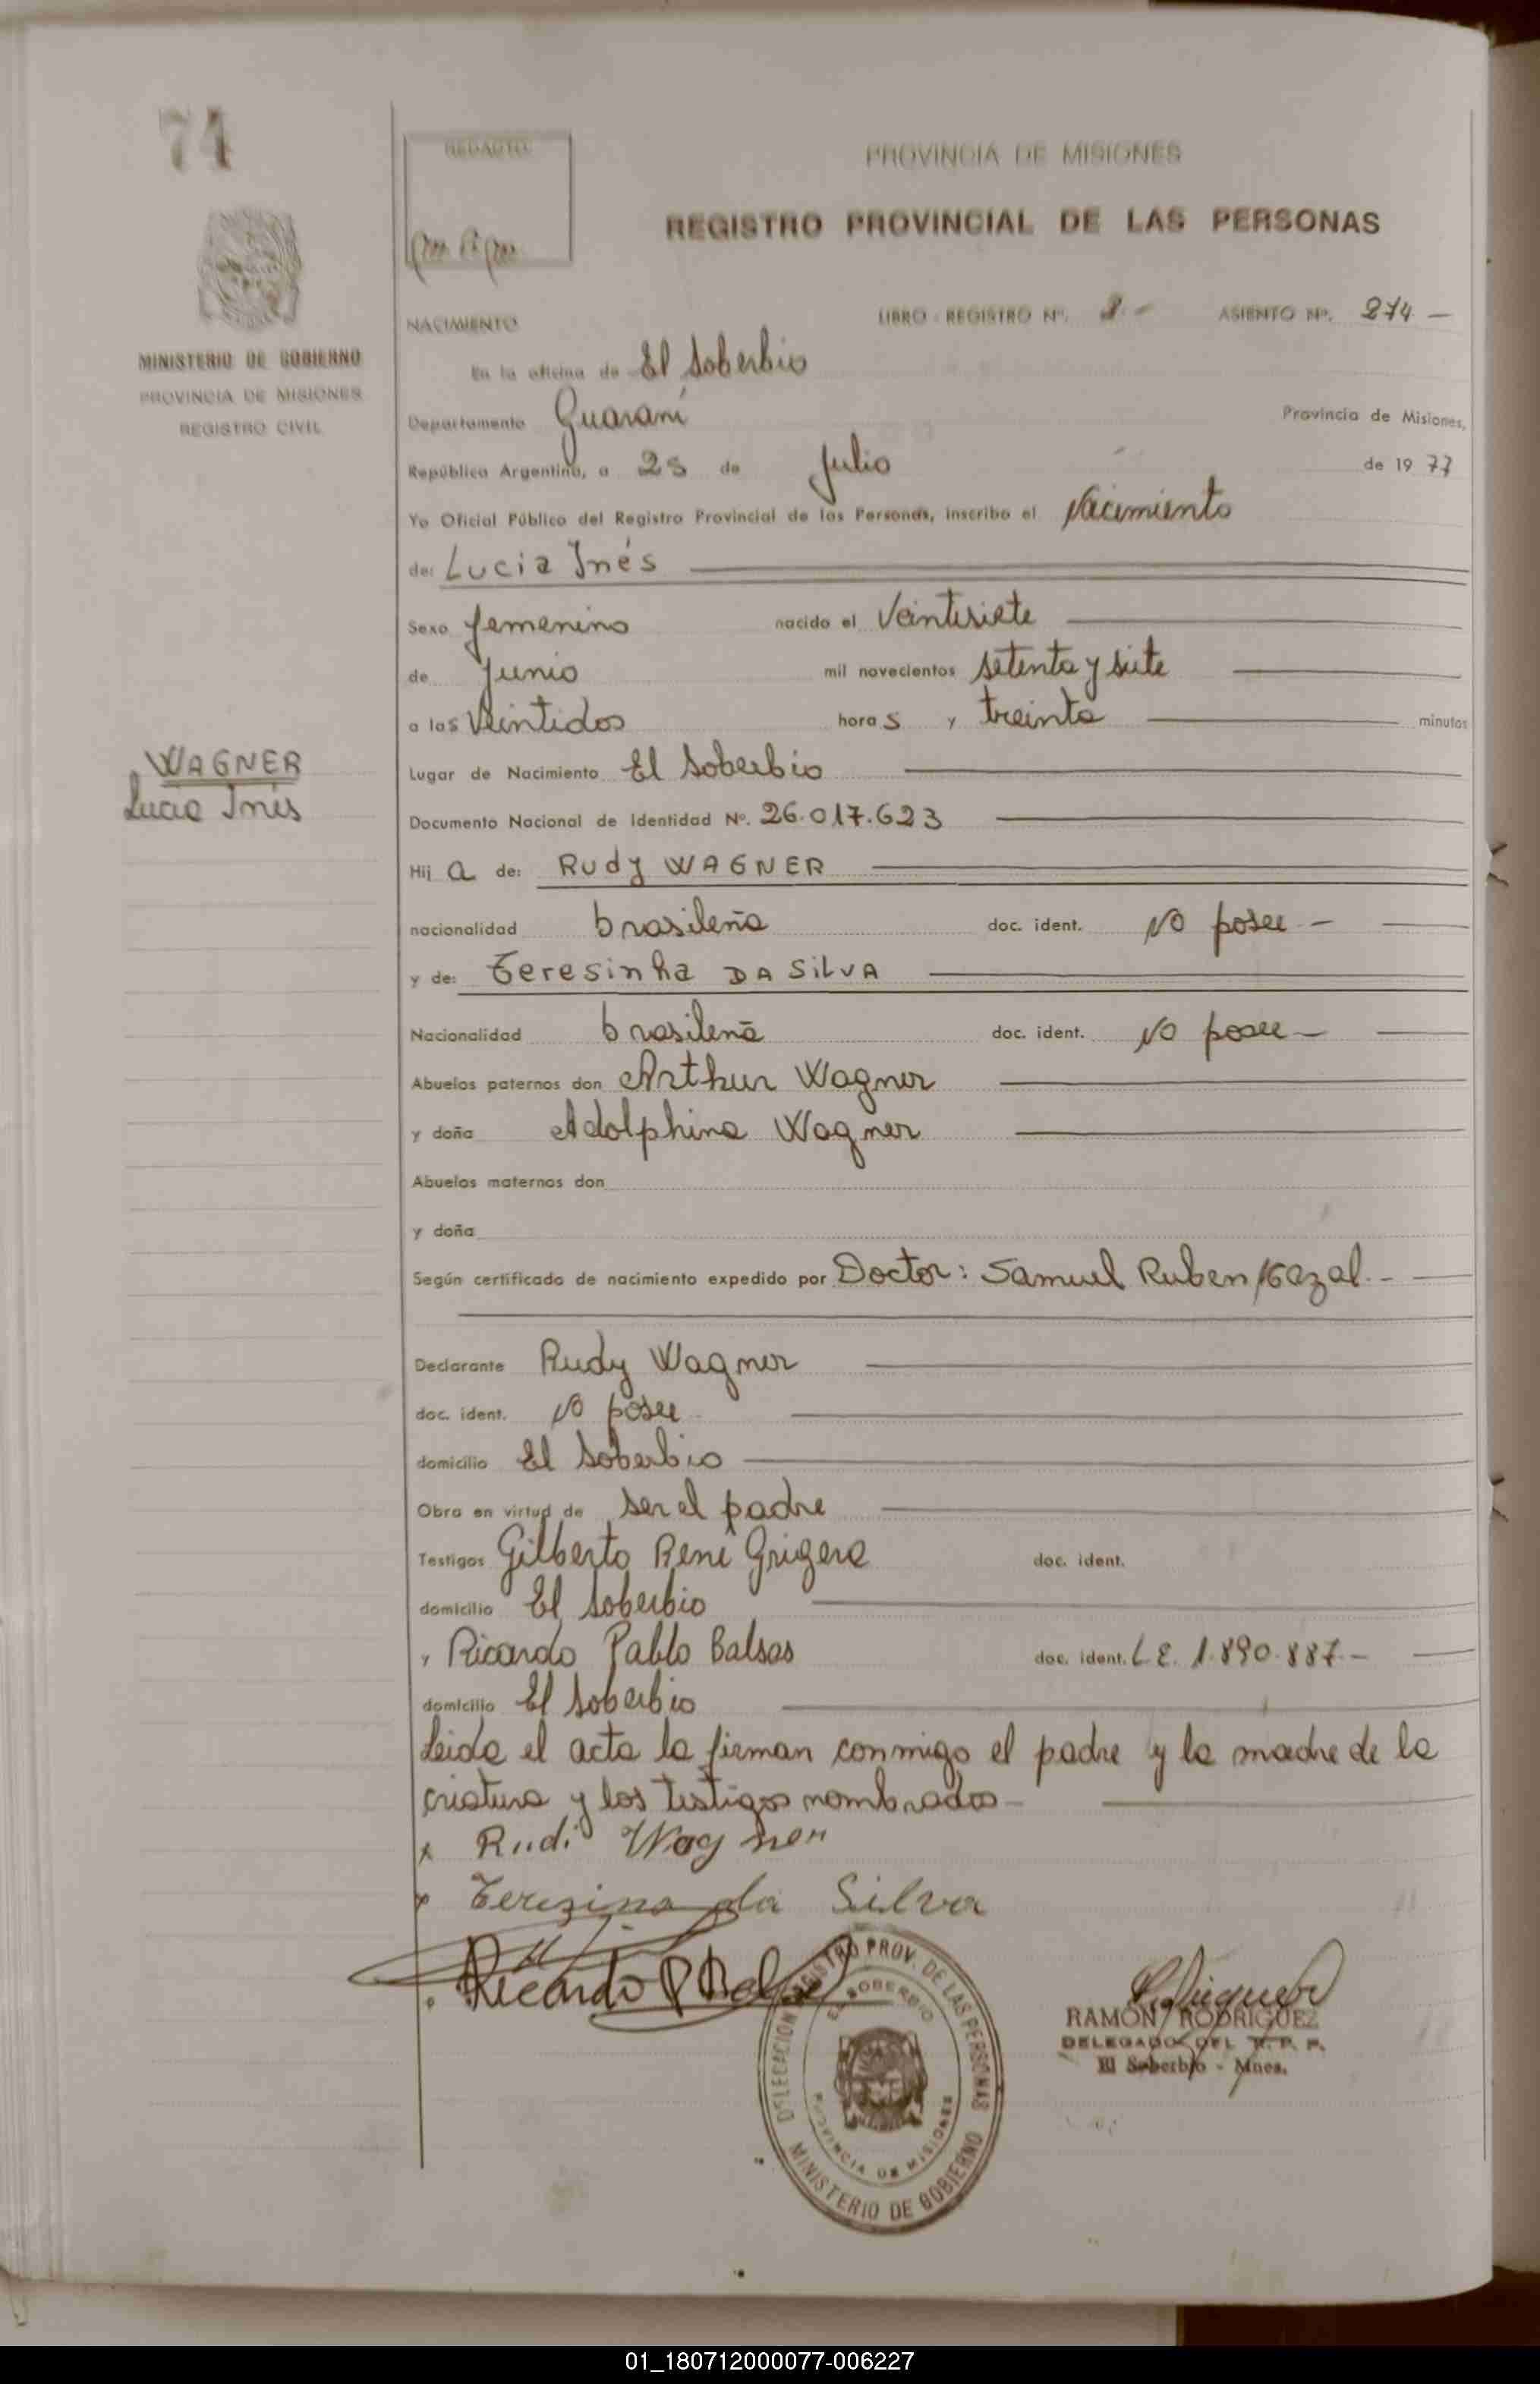 74
REDACTO:
PROVINCIA DE MISIONES
REGISTRO PROVINCIAL DE LAS PERSONAS
MINISTERIO DE GOBIERNO
PROVINCIA DE MISIONES
REGISTRO CIVIL
NACIMIENTO LIBRO - REGISTRO Nº. ASIENTO Nº. 274 —
En la oficina de El Soberbio
Departamento Guaraní Provincia de Misiones,
República Argentina, a 25 de Julio de 19 77
Yo Oficial Público del Registro Provincial de las Personas, inscribo el Nacimiento
de: Lucia Inés
Sexo femenino nacido el Veintisiete
de Junio mil novecientos setenta y siete
a las Veintidos horas y treinta minutos
WAGNER
Lucia Inés
Lugar de Nacimiento El Soberbio
Documento Nacional de Identidad Nº. 26.017.623
Hija de: Rudy WAGNER
nacionalidad brasileña doc. ident. No posee —
y de: Teresinha DA SILVA
Nacionalidad brasileña doc. ident. No posee —
Abuelos paternos don Arthur Wagner
y doña Adolphina Wagner
Abuelos maternos don
y doña
Según certificado de nacimiento expedido por Doctor: Samuel Ruben Kazal.-
Declarante Rudy Wagner
doc. ident. No posee
domicilio El Soberbio
Obra en virtud de ser el padre
Testigos Gilberto René Grigera doc. ident.
domicilio El Soberbio
y Ricardo Pablo Balsas doc. ident. L.E. 1.890.887.-
domicilio El Soberbio
Leida el acta la firman conmigo el padre y la madre de la
criatura y los testigos nombrados —
x Rudi Wagner
x Terezina da Silva
Ricardo P Balsas
DELEGACION REGISTRO PROV. DE LAS PERSONAS
EL SOBERBIO
PROVINCIA DE MISIONES
MINISTERIO DE GOBIERNO
RAMON RODRIGUEZ
DELEGADO DEL R. P. P.
El Soberbio - Mnes.
01_180712000077-006227